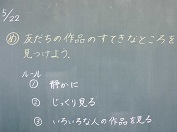 5/22
め 友だちの作品のすてきなところを
見つけよう。
ルール
① 静かに
② じっくり見る
③ いろいろな人の作品を見る